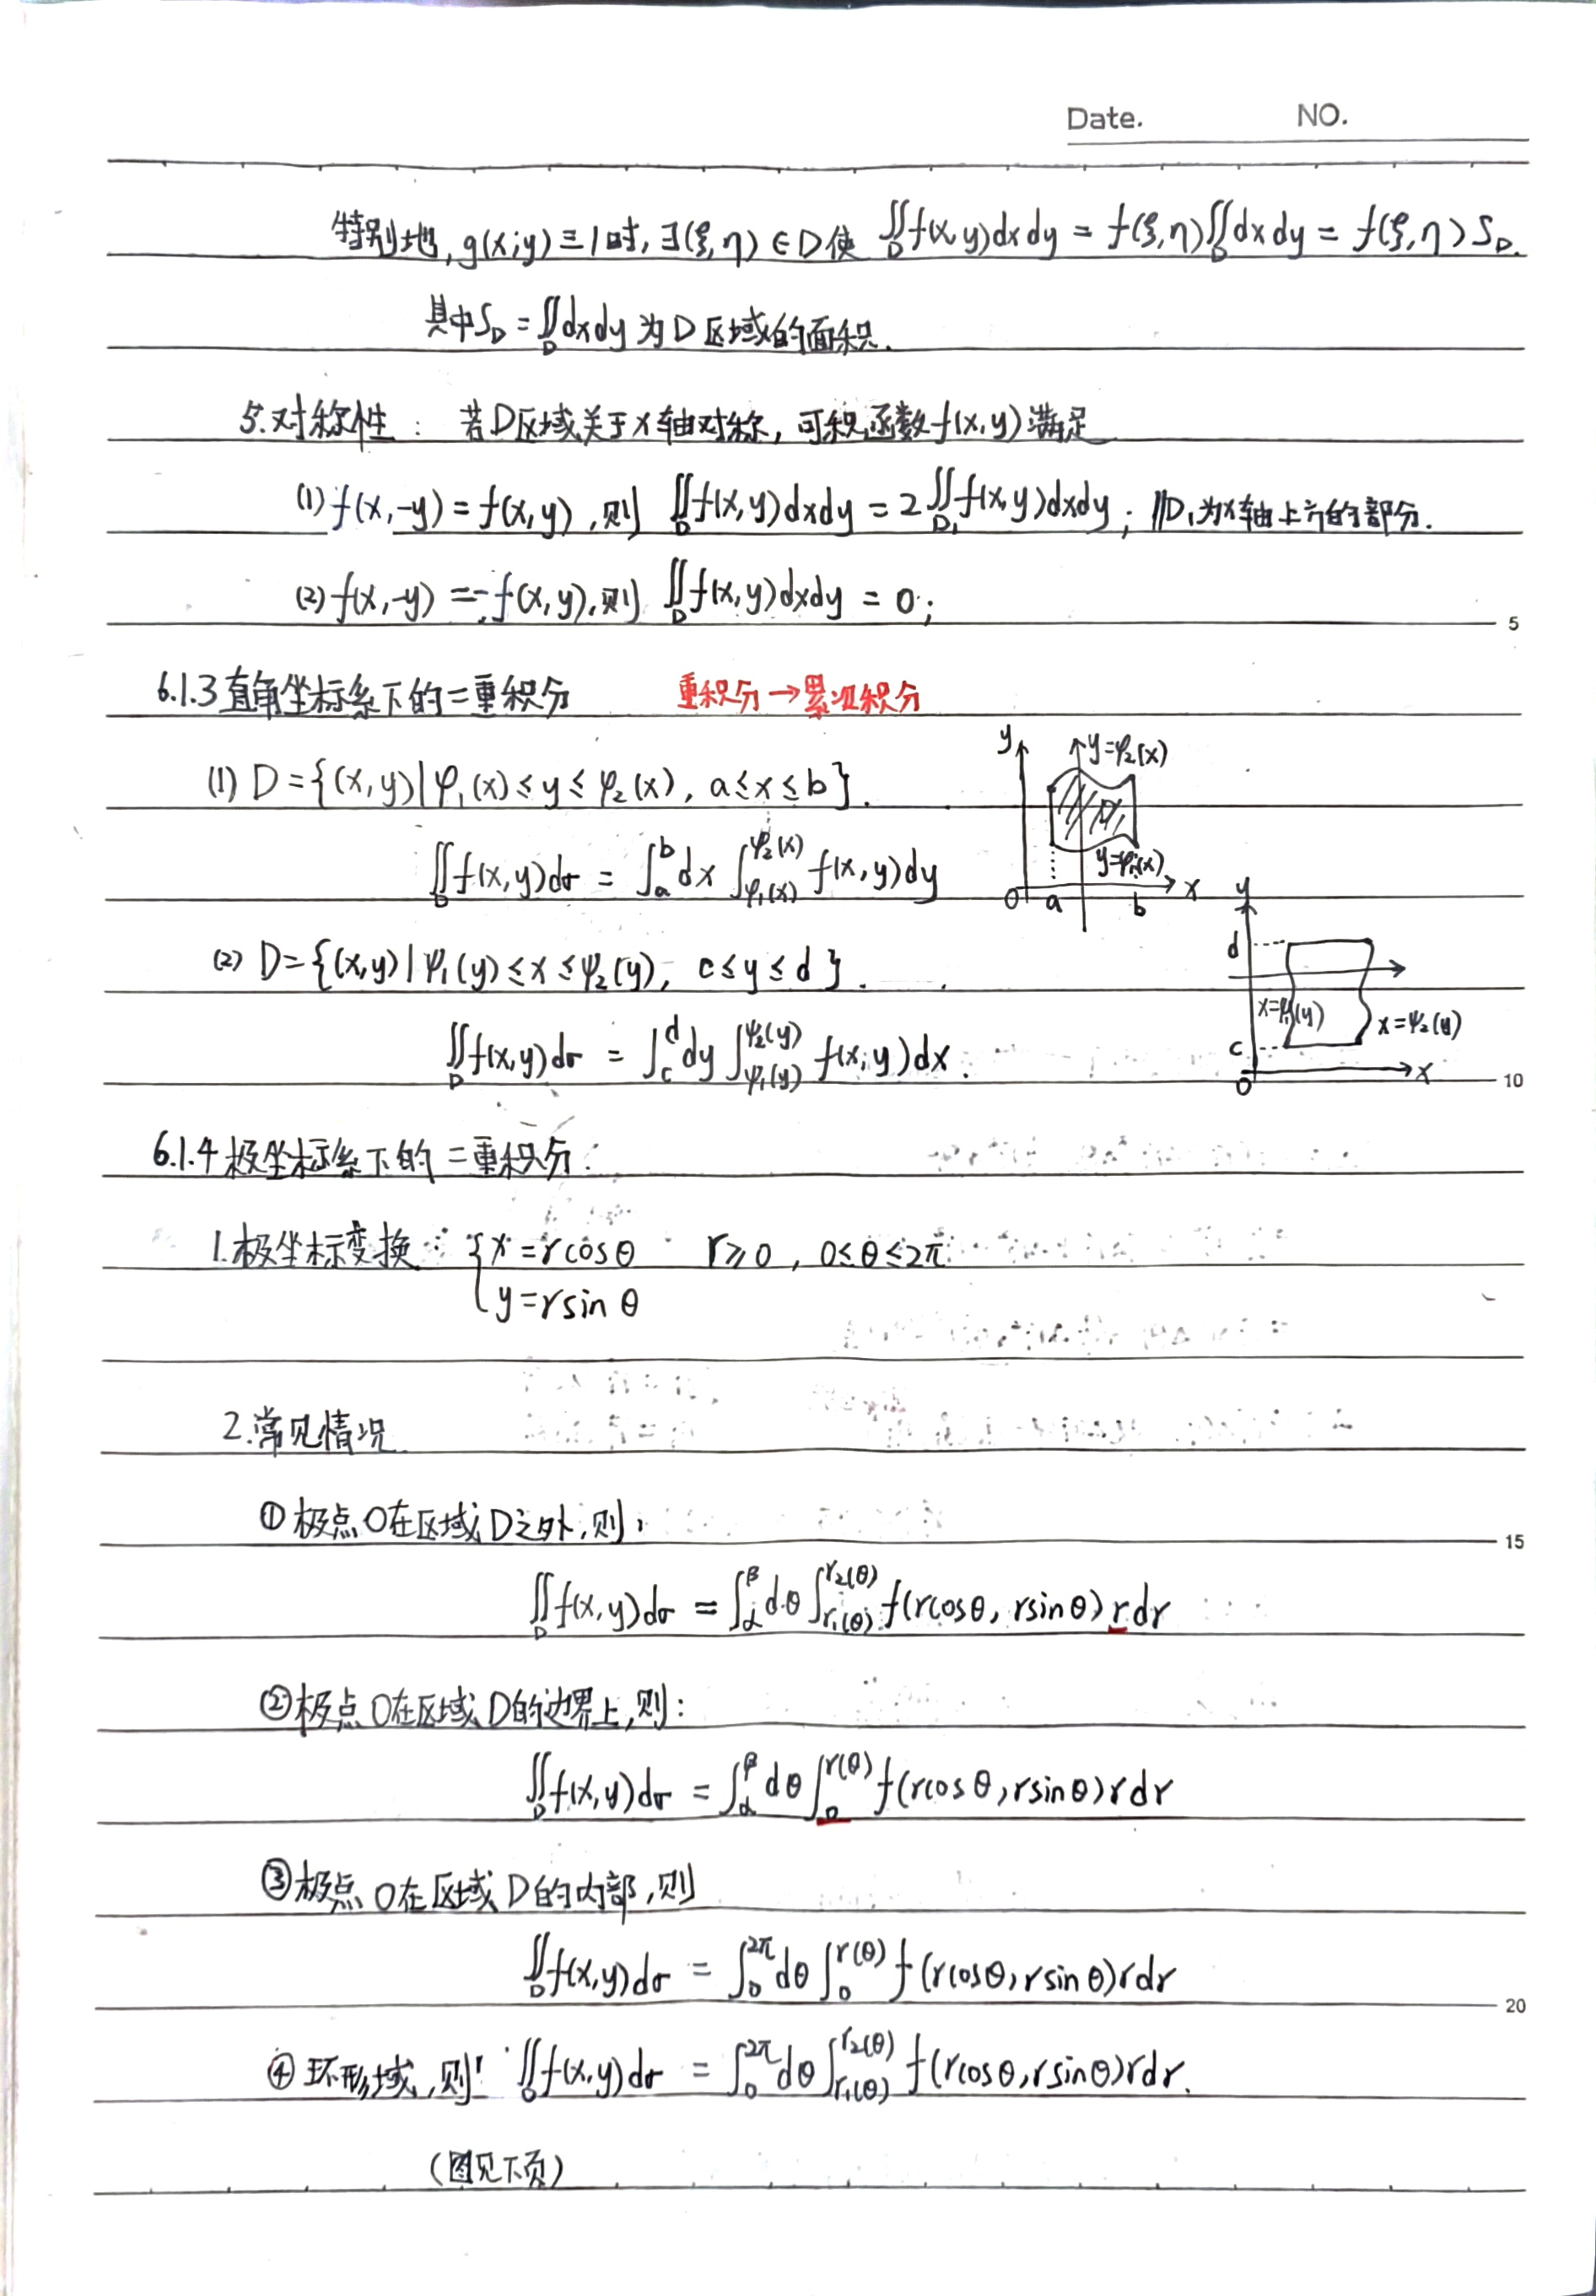 Date. NO.
特别地, g(x,y) ≡ 1时, ∃(ξ,η) ∈ D 使 ∬_D f(x,y)dxdy = f(ξ,η)∬_D dxdy = f(ξ,η) S_D.
其中S_D = ∬_D dxdy 为 D 区域的面积.
5.对称性: 若D区域关于x轴对称, 可积函数f(x,y)满足
(1) f(x,-y) = f(x,y), 则 ∬_D f(x,y)dxdy = 2∬_{D₁} f(x,y)dxdy; //D₁为x轴上方的部分.
(2) f(x,-y) = -f(x,y), 则 ∬_D f(x,y)dxdy = 0;
5
6.1.3 直角坐标系下的二重积分 重积分→累次积分
(1) D = {(x,y)| φ₁(x) ≤ y ≤ φ₂(x), a ≤ x ≤ b}.
y y=φ₂(x)
D
∬_D f(x,y)dσ = ∫_a^b dx ∫_{φ₁(x)}^{φ₂(x)} f(x,y)dy
y=φ₁(x)
0 a b x
(2) D = {(x,y)| ψ₁(y) ≤ x ≤ ψ₂(y), c ≤ y ≤ d}.
y
d
x=ψ₁(y) x=ψ₂(y)
∬_D f(x,y)dσ = ∫_c^d dy ∫_{ψ₁(y)}^{ψ₂(y)} f(x,y)dx.
c
0 x
10
6.1.4 极坐标系下的二重积分:
1.极坐标变换: { x = rcosθ r ≥ 0, 0 ≤ θ ≤ 2π
y = rsinθ
2.常见情况
① 极点O在区域D之外,则:
15
∬_D f(x,y)dσ = ∫_α^β dθ ∫_{r₁(θ)}^{r₂(θ)} f(rcosθ, rsinθ) r dr
② 极点O在区域D的边界上,则:
∬_D f(x,y)dσ = ∫_α^β dθ ∫_0^{r(θ)} f(rcosθ, rsinθ) r dr
③ 极点O在区域D的内部,则
∬_D f(x,y)dσ = ∫_0^{2π} dθ ∫_0^{r(θ)} f(rcosθ, rsinθ) r dr
20
④ 环形域,则: ∬_D f(x,y)dσ = ∫_0^{2π} dθ ∫_{r₁(θ)}^{r₂(θ)} f(rcosθ, rsinθ) r dr.
(图见下页)